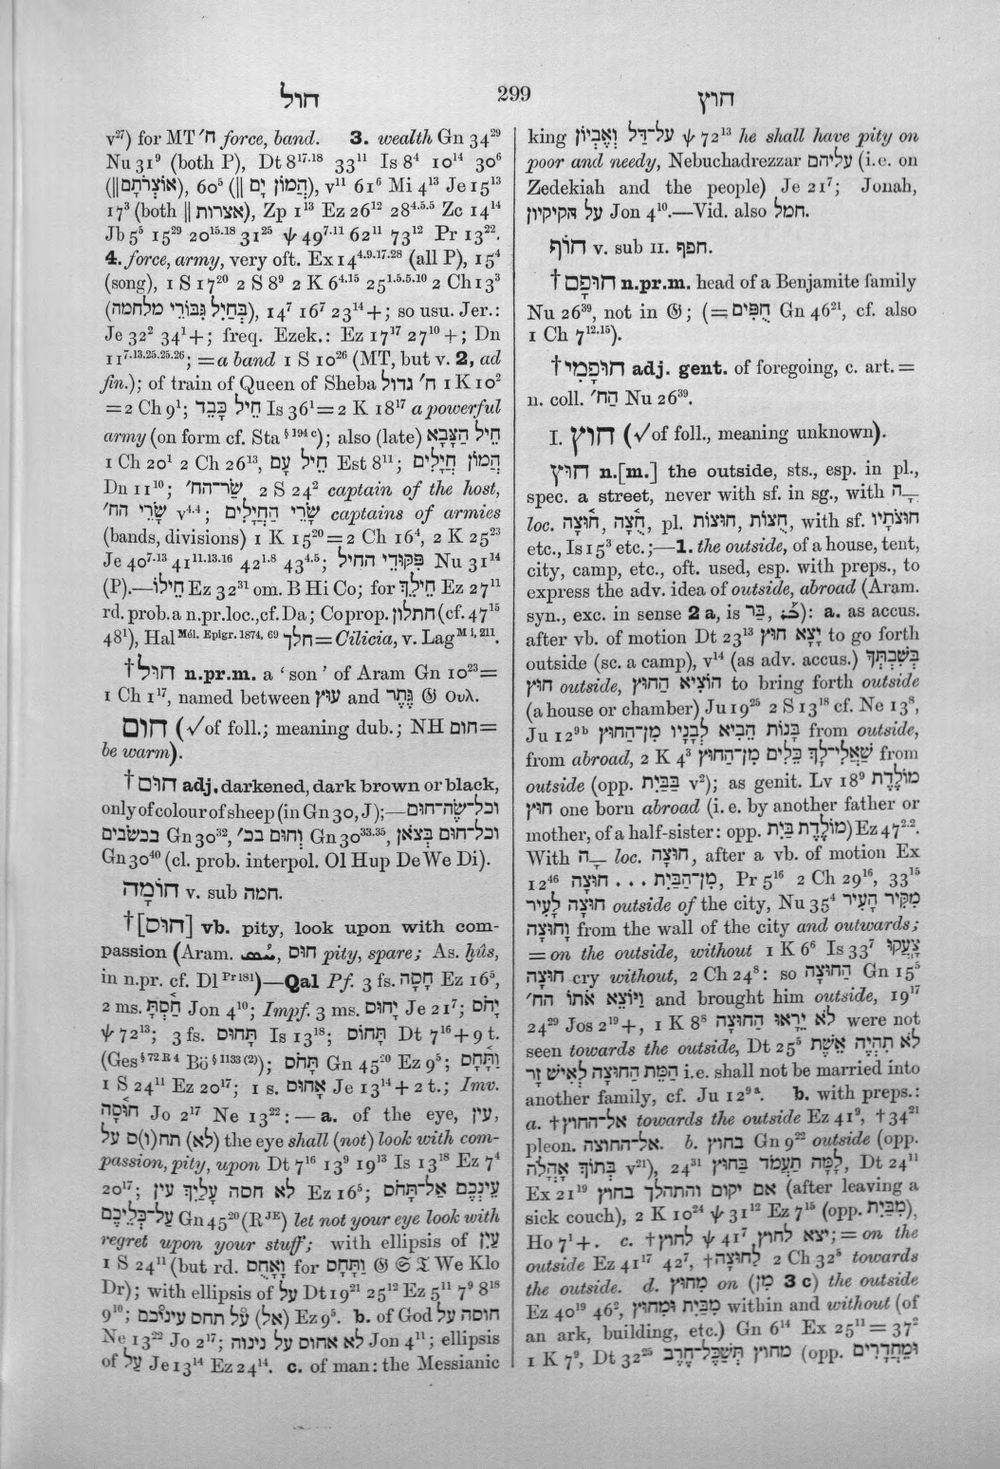 חול
299
חוץ
v²⁷) for MT ח׳ force, band. 3. wealth Gn 34²⁹
Nu 31⁹ (both P), Dt 8¹⁷·¹⁸ 33¹¹ Is 8⁴ 10¹⁴ 30⁶
(‖אוֹצְרֹתָם), 60⁵ (‖ הֲמוֹן יָם), v¹¹ 61⁶ Mi 4¹³ Je 15¹³
17³ (both ‖ אצרות), Zp 1¹³ Ez 26¹² 28⁴·⁵·⁵ Zc 14¹⁴
Jb 5⁵ 15²⁹ 20¹⁵·¹⁸ 31²⁵ ψ 49⁷·¹¹ 62¹¹ 73¹² Pr 13²².
4. force, army, very oft. Ex 14⁴·⁹·¹⁷·²⁸ (all P), 15⁴
(song), 1 S 17²⁰ 2 S 8⁹ 2 K 6⁴·¹⁵ 25¹·⁵·⁵·¹⁰ 2 Ch 13³
(בְּחַיִל גִּבּוֹרֵי מלחמה), 14⁷ 16⁷ 23¹⁴+; so usu. Jer.:
Je 32² 34¹+; freq. Ezek.: Ez 17¹⁷ 27¹⁰+; Dn
11⁷·¹³·²⁵·²⁵·²⁶; =a band 1 S 10²⁶ (MT, but v. 2, ad
fin.); of train of Queen of Sheba ח׳ גדול 1 K 10²
=2 Ch 9¹; חֵיל כָּבֵד Is 36¹=2 K 18¹⁷ a powerful
army (on form cf. Sta §¹⁹⁴ᶜ); also (late) חֵיל הַצָּבָא
1 Ch 20¹ 2 Ch 26¹³, חֵיל עָם Est 8¹¹; הֲמוֹן חֲיָלִים
Dn 11¹⁰; שַׂר־הח׳ 2 S 24² captain of the host,
שָׂרֵי הח׳ v⁴·⁴; שָׂרֵי הַחֲיָלִים captains of armies
(bands, divisions) 1 K 15²⁰=2 Ch 16⁴, 2 K 25²³
Je 40⁷·¹³ 41¹¹·¹³·¹⁶ 42¹·⁸ 43⁴·⁵; פִּקּוּדֵי החיל Nu 31¹⁴
(P).—חֵילוֹ Ez 32³¹ om. B Hi Co; for חֵילֵךְ Ez 27¹¹
rd. prob. a n.pr.loc., cf. Da; Co prop. חתלון (cf. 47¹⁵
48¹), Hal Mél. Epigr. 1874, 69 חלך=Cilicia, v. Lag M i, 211.
† חוּל n.pr.m. a ‘son’ of Aram Gn 10²³=
1 Ch 1¹⁷, named between עוּץ and גֶּתֶר 𝔊 Ουλ.
חום (√of foll.; meaning dub.; NH חום=
be warm).
† חוּם adj. darkened, dark brown or black,
only of colour of sheep (in Gn 30, J);—וכל־שֶׂה־חוּם
בכשבים Gn 30³², וְחוּם בכ׳ Gn 30³³·³⁵, וכל־חוּם בְּצֹאן
Gn 30⁴⁰ (cl. prob. interpol. Ol Hup De We Di).
חוֹמָה v. sub חמה.
†[חוּס] vb. pity, look upon with com-
passion (Aram. חוּס pity, spare; As. ḫûs,
in n.pr. cf. Dl Pr 181)—Qal Pf. 3 fs. חָסָה Ez 16⁵,
2 ms. חַסְתָּ Jon 4¹⁰; Impf. 3 ms. יָחוּס Je 21⁷; יָחֹס
ψ 72¹³; 3 fs. תָּחוּס Is 13¹⁸; תָּחוֹס Dt 7¹⁶+9 t.
(Ges §72 R 4 Bö §1133 (2)); תָּחֹס Gn 45²⁰ Ez 9⁵; וַתָּחָס
1 S 24¹¹ Ez 20¹⁷; 1 s. אָחוּס Je 13¹⁴+2 t.; Imv.
חוּסָה Jo 2¹⁷ Ne 13²²:—a. of the eye, עין,
(לא) תח(ו)ס על the eye shall (not) look with com-
passion, pity, upon Dt 7¹⁶ 13⁹ 19¹³ Is 13¹⁸ Ez 7⁴
20¹⁷; לא חסה עָלַיִךְ עין Ez 16⁵; עֵינְכֶם אַל־תָּחֹס
עַל־כְּלֵיכֶם Gn 45²⁰ (R JE) let not your eye look with
regret upon your stuff; with ellipsis of עַיִן
1 S 24¹¹ (but rd. וָאָחֻס for וַתָּחָס 𝔊 𝔖 𝔗 We Klo
Dr); with ellipsis of על Dt 19²¹ 25¹² Ez 5¹¹ 7⁹ 8¹⁸
9¹⁰; (אל) עַל תחס עינׄכם Ez 9⁵. b. of God חוסה על
Ne 13²² Jo 2¹⁷; לא אחוס על נינוה Jon 4¹¹; ellipsis
of על Je 13¹⁴ Ez 24¹⁴. c. of man: the Messianic
king עַל־דַּל וְאֶבְיוֹן ψ 72¹³ he shall have pity on
poor and needy, Nebuchadrezzar עליהם (i.e. on
Zedekiah and the people) Je 21⁷; Jonah,
על הקיקיון Jon 4¹⁰.—Vid. also חמל.
חוֹף v. sub II. חפף.
† חוּפָם n.pr.m. head of a Benjamite family
Nu 26³⁹, not in 𝔊; (=חֻפִּים Gn 46²¹, cf. also
1 Ch 7¹²·¹⁵).
† חוּפָמִי adj. gent. of foregoing, c. art.=
n. coll. הַח׳ Nu 26³⁹.
I. חוץ (√of foll., meaning unknown).
חוּץ n.[m.] the outside, sts., esp. in pl.,
spec. a street, never with sf. in sg., with ־ָה
loc. חוּצָה, חֻצָה, חוּצָה, pl. חוּצוֹת, חֻצוֹת, with sf. חוּצֹתָיו
etc., Is 15³ etc.;—1. the outside, of a house, tent,
city, camp, etc., oft. used, esp. with preps., to
express the adv. idea of outside, abroad (Aram.
syn., exc. in sense 2 a, is בַּר, ): a. as accus.
after vb. of motion Dt 23¹³ יָצָא חוּץ to go forth
outside (sc. a camp), v¹⁴ (as adv. accus.) בְּשִׁבְתְּךָ
חוּץ outside, הוֹצִיא הַחוּץ to bring forth outside
(a house or chamber) Ju 19²⁵ 2 S 13¹⁸ cf. Ne 13⁸,
Ju 12⁹ᵇ בָּנוֹת הֵבִיא לְבָנָיו מִן־הַחוּץ from outside,
from abroad, 2 K 4³ שַׁאֲלִי־לָךְ כֵּלִים מִן־הַחוּץ from
outside (opp. בַּבַּיִת v²); as genit. Lv 18⁹ מוֹלֶדֶת
חוּץ one born abroad (i. e. by another father or
mother, of a half-sister: opp. מוֹלֶדֶת בַּיִת) Ez 47²·².
With ־ָה loc. חוּצָה, after a vb. of motion Ex
12⁴⁶ מִן־הַבַּיִת ... חוּצָה, Pr 5¹⁶ 2 Ch 29¹⁶, 33¹⁵
חוּצָה לָעִיר outside of the city, Nu 35⁴ מִקִּיר הָעִיר
וָחוּצָה from the wall of the city and outwards;
=on the outside, without 1 K 6⁶ Is 33⁷ צָעֲקוּ
חוּצָה cry without, 2 Ch 24⁸: so הַחוּצָה Gn 15⁵
וַיּוֹצֵא אֹתוֹ הח׳ and brought him outside, 19¹⁷
24²⁹ Jos 2¹⁹+, 1 K 8⁸ לֹא יֵרָאוּ הַחוּצָה were not
seen towards the outside, Dt 25⁵ לֹא תִהְיֶה אֵשֶׁת
הַמֵּת הַחוּצָה לְאִישׁ זָר i.e. shall not be married into
another family, cf. Ju 12⁹ᵃ. b. with preps.:
a. †אל־החוץ towards the outside Ez 41⁹, †34²¹
pleon. אל־החוצה. b. בחוץ Gn 9²² outside (opp.
בְּתוֹךְ אָהֳלֹה v²¹), 24³¹ לָמָּה תַעֲמֹד בַּחוּץ, Dt 24¹¹
Ex 21¹⁹ אם יקום והתהלך בחוץ (after leaving a
sick couch), 2 K 10²⁴ ψ 31¹² Ez 7¹⁵ (opp. מִבַּיִת),
Ho 7¹+. c. †לחוץ ψ 41⁷ יצא לחוץ; =on the
outside Ez 41¹⁷ 42⁷, †לחוּצָה 2 Ch 32⁵ towards
the outside. d. מחוץ on (מִן 3 c) the outside
Ez 40¹⁹ 46², מִבַּיִת וּמִחוּץ within and without (of
an ark, building, etc.) Gn 6¹⁴ Ex 25¹¹=37²
1 K 7⁹, Dt 32²⁵ מחוץ תְּשַׁכֶּל־חֶרֶב (opp. וּמֵחֲדָרִים